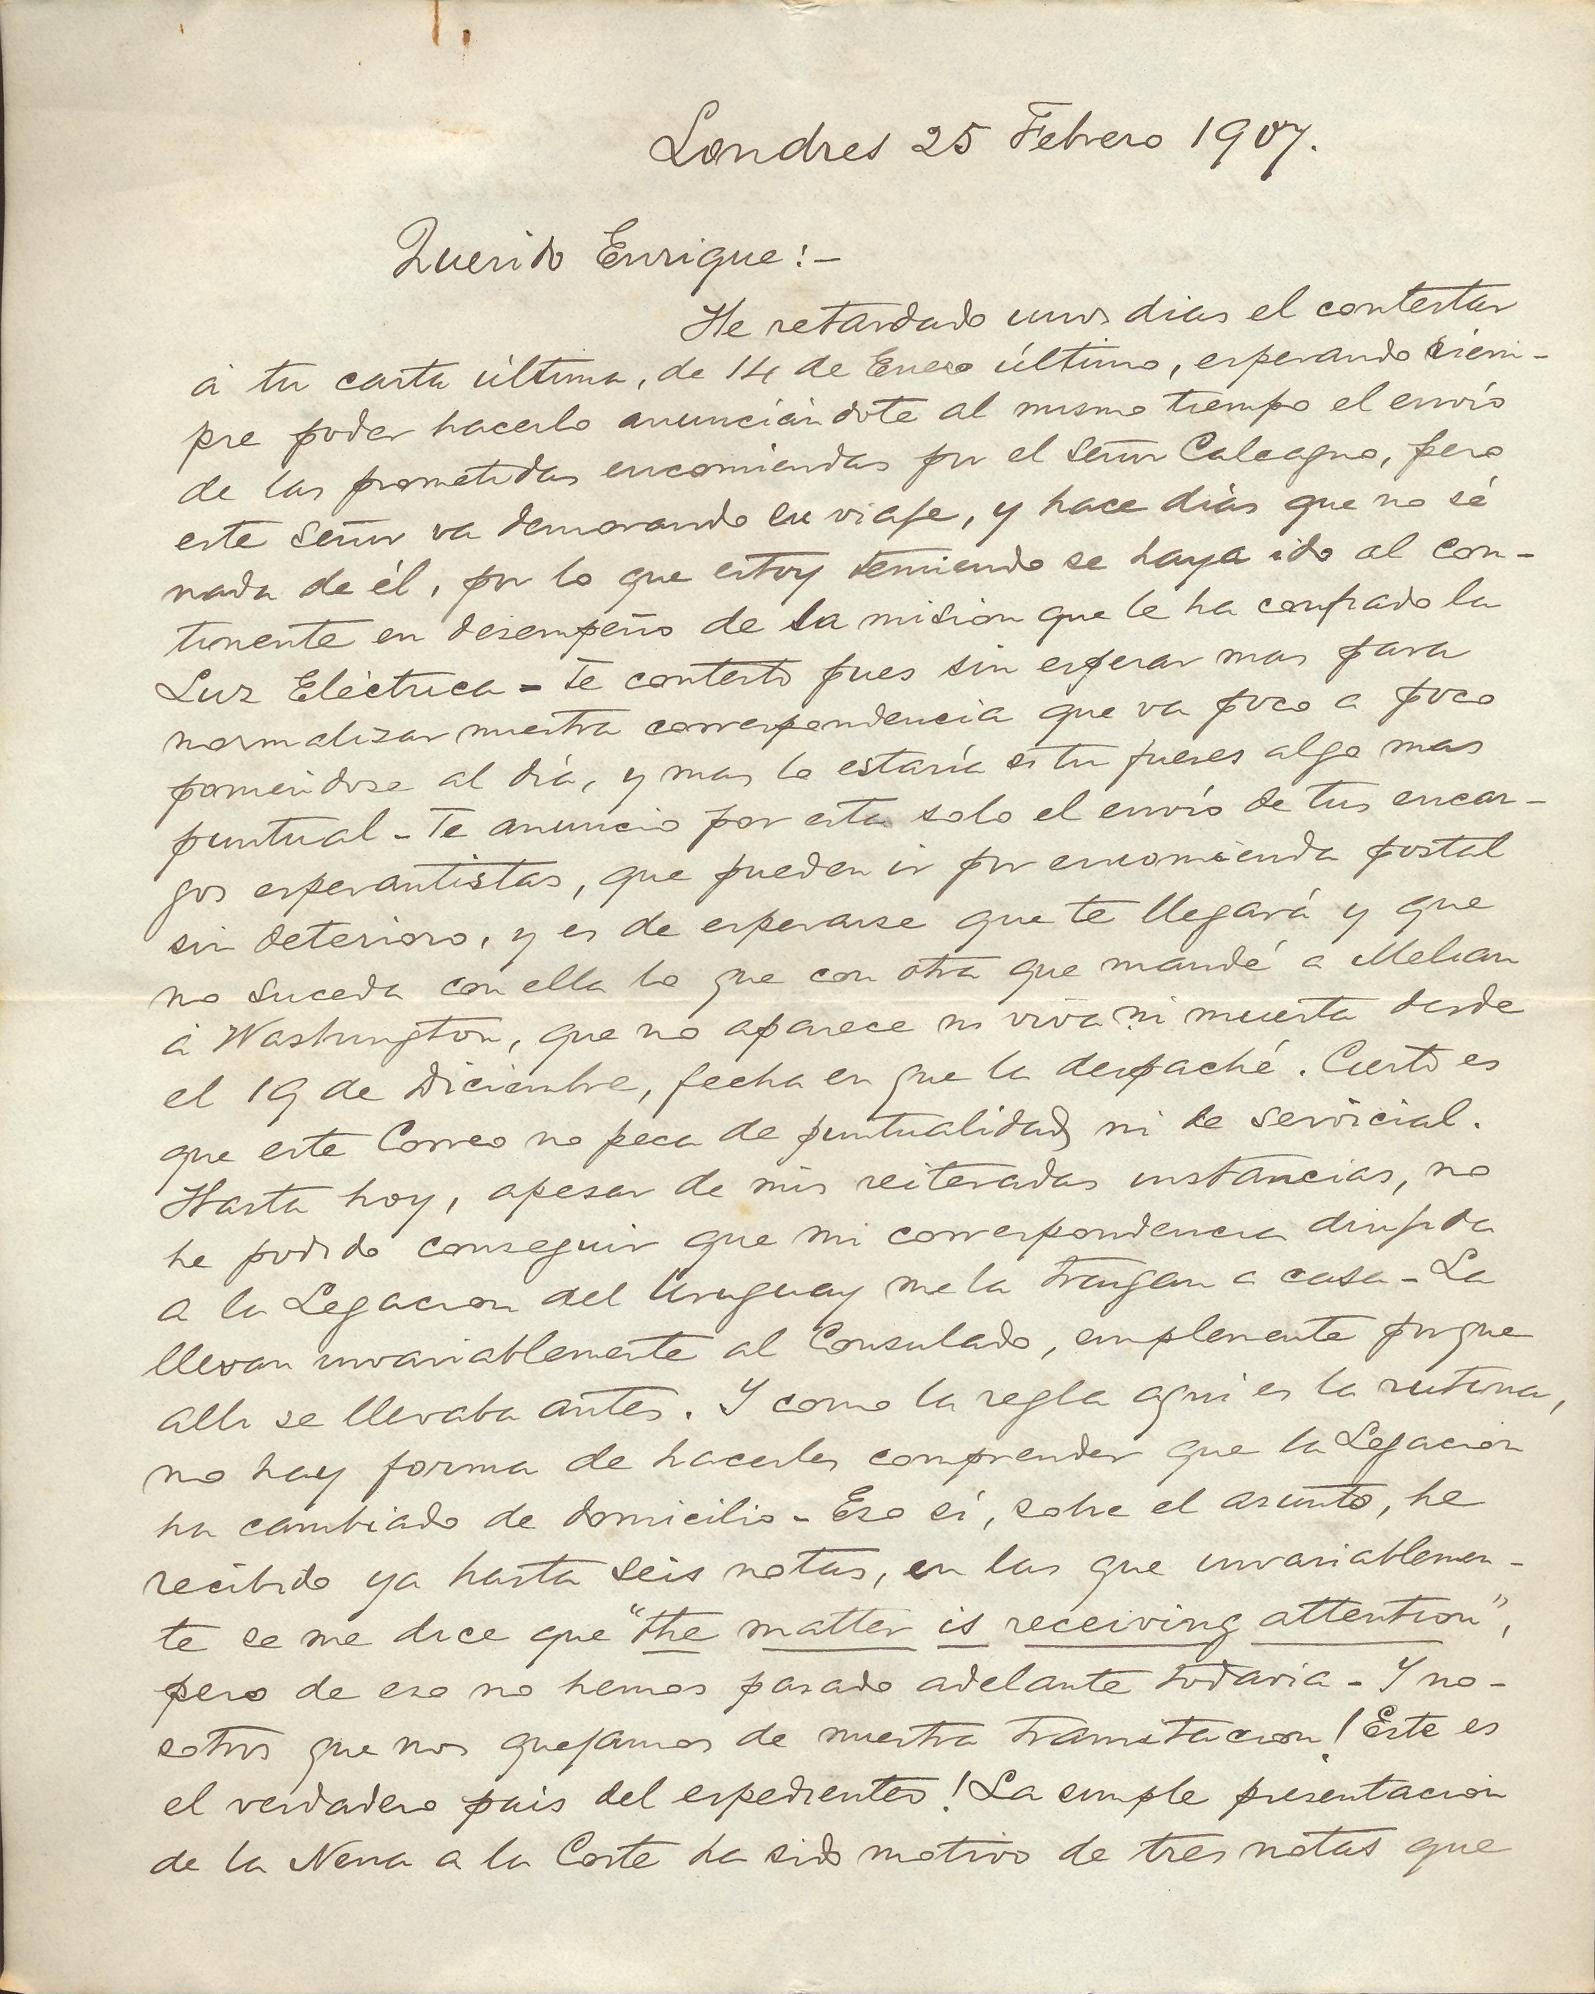 Londres 25 Febrero 1907.
Querido Enrique:-
He retardado unos dias el contestar
á tu carta última, de 14 de Enero último, esperando siem-
pre poder hacerlo anunciándote al mismo tiempo el envío
de las prometidas encomiendas por el Señor Calcagno, pero
este Señor va demorando su viaje, y hace dias que no sé
nada de él, por lo que estoy temiendo se haya ido al con-
tinente en desempeño de la mision que le ha confiado la
Luz Eléctrica - Te contesto pues sin esperar mas para
normalizar nuestra correspondencia que va poco a poco
poniendose al día, y mas lo estaría si tu fueses algo mas
puntual - Te anuncio por esta solo el envío de tus encar-
gos esperantistas, que pueden ir por encomienda postal
sin deterioro, y es de esperarse que te llegará y que
no suceda con ella lo que con otra que mandé a Melian
á Washington, que no aparece ni viva ni muerta desde
el 19 de Diciembre, fecha en que la despaché. Cierto es
que este Correo no peca de puntualidad ni de servicial.
Hasta hoy, apesar de mis reiteradas instancias, no
he podido conseguir que mi correspondencia dirijida
a la Legacion del Uruguay me la traigan a casa - La
llevan invariablemente al Consulado, simplemente porque
alli se llevaba antes. Y como la regla aqui es la rutina,
no hay forma de hacerles comprender que la Legacion
ha cambiado de domicilio - Eso sí, sobre el asunto, he
recibido ya hasta seis notas, en las que invariablemen-
te se me dice que "the matter is receiving attention",
pero de eso no hemos pasado adelante todavia - Y no-
sotros que nos quejamos de nuestra tramitacion! Este es
el verdadero pais del espedienteo! La simple presentacion
de la Nena a la Corte ha sido motivo de tres notas que